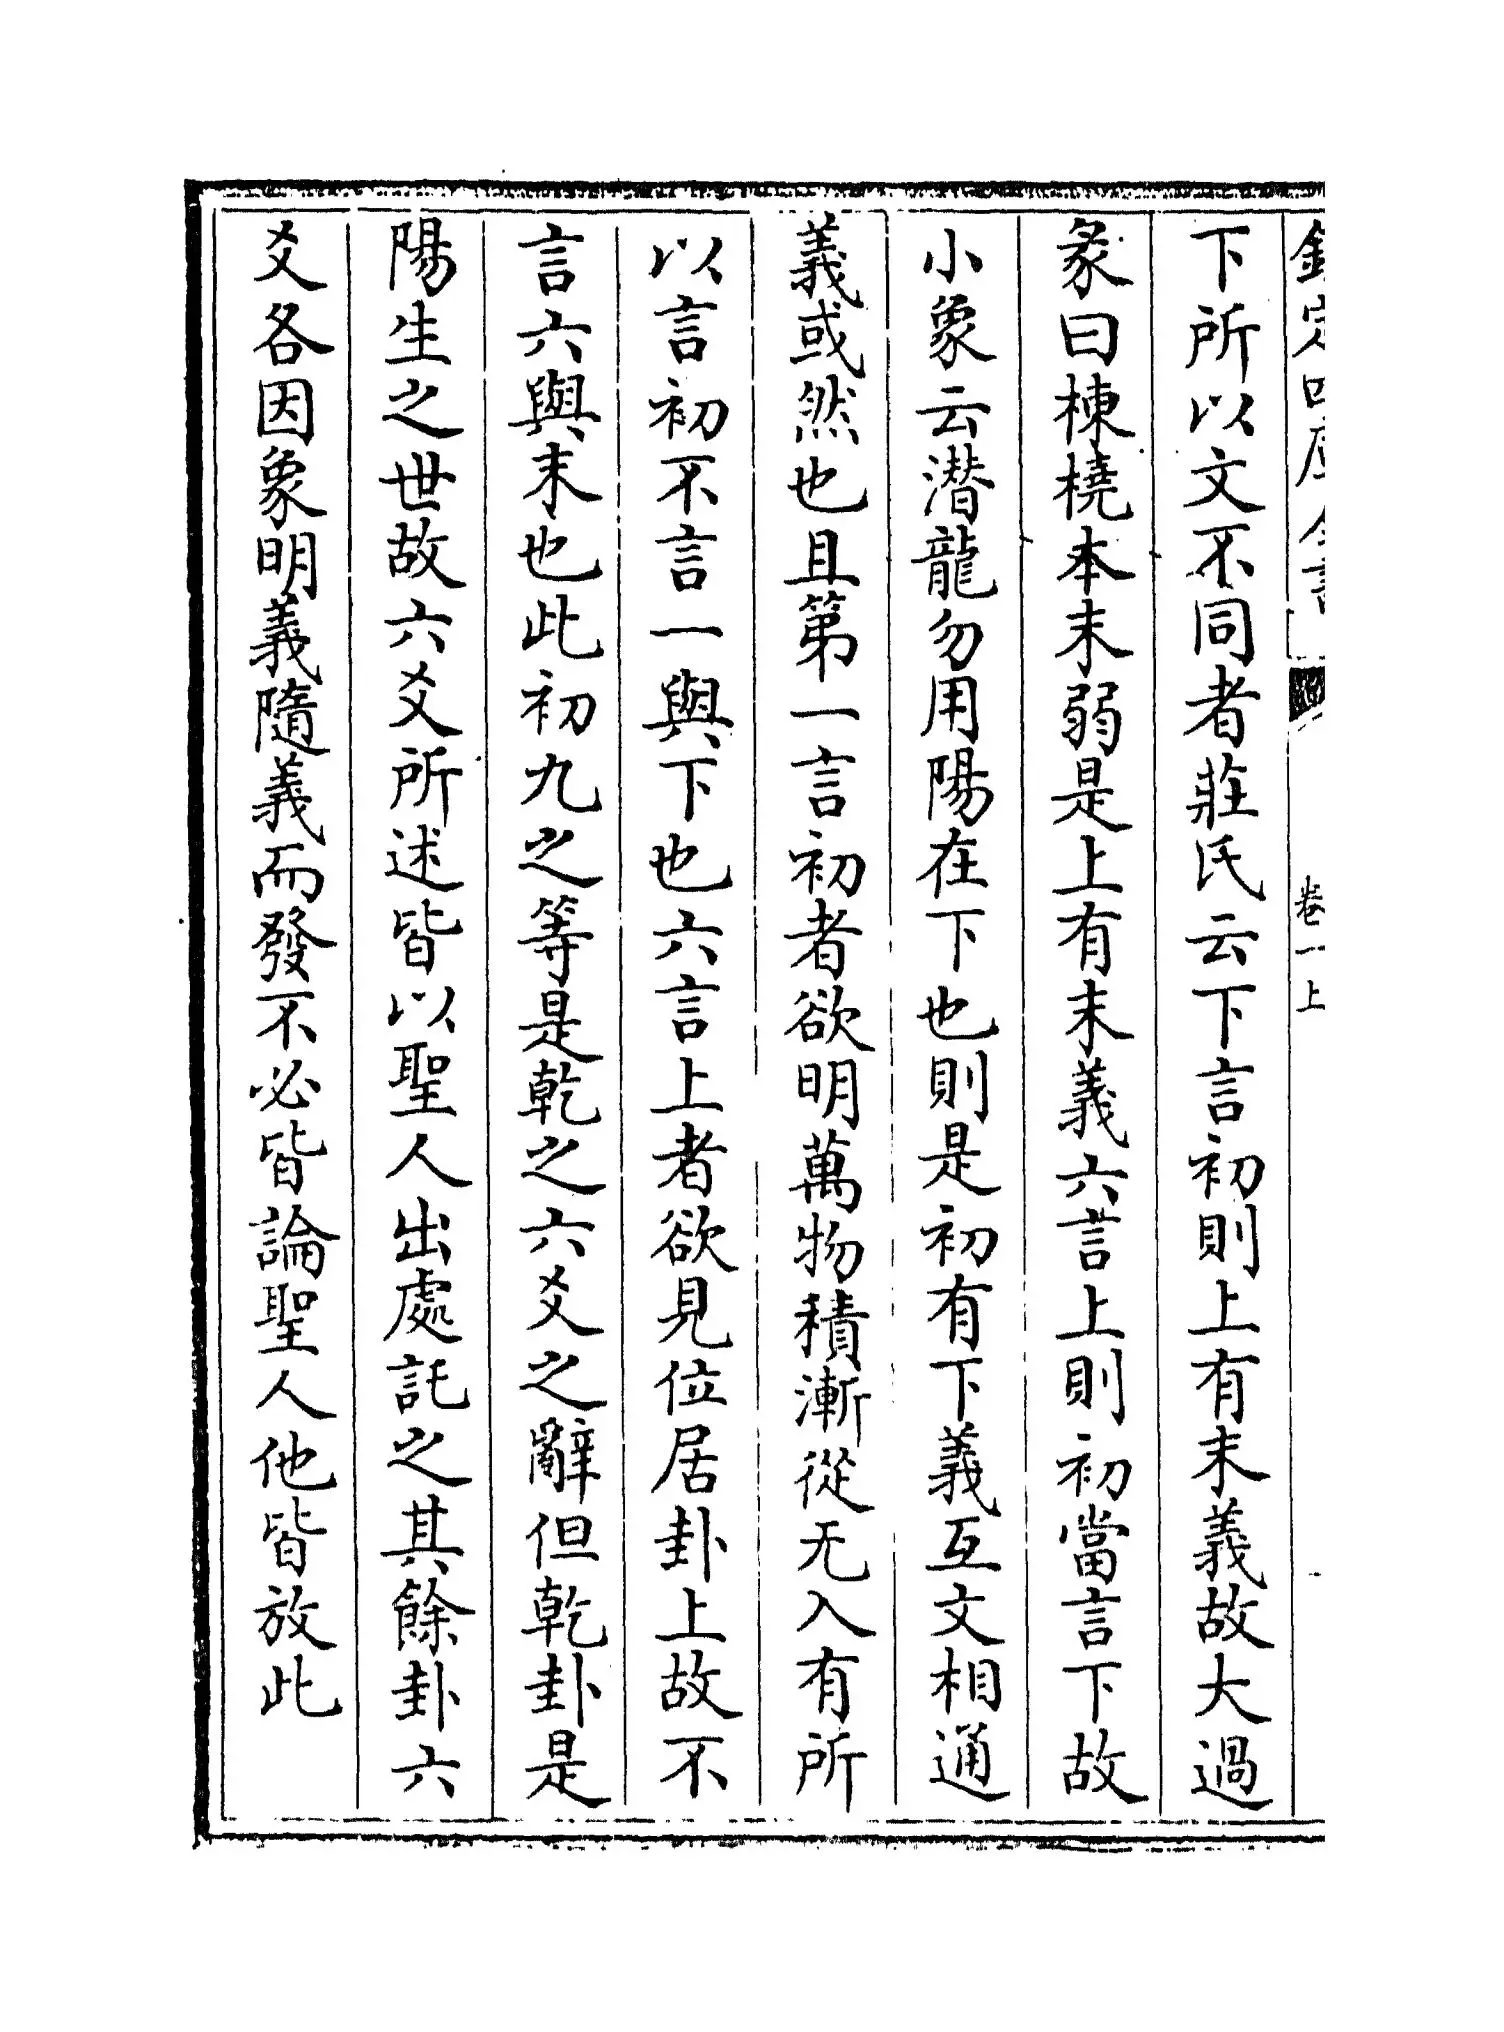 欽定四庫全書
卷一上
下所以文不同者莊氏云下言初則上有末義故大過
彖曰棟橈本末弱是上有末義六言上則初當言下故
小象云潛龍勿用陽在下也則是初有下義互文相通
義或然也且第一言初者欲明萬物積漸從无入有所
以言初不言一與下也六言上者欲見位居卦上故不
言六與末也此初九之等是乾之六爻之辭但乾卦是
陽生之世故六爻所述皆以聖人出處託之其餘卦六
爻各因象明義隨義而發不必皆論聖人他皆放此